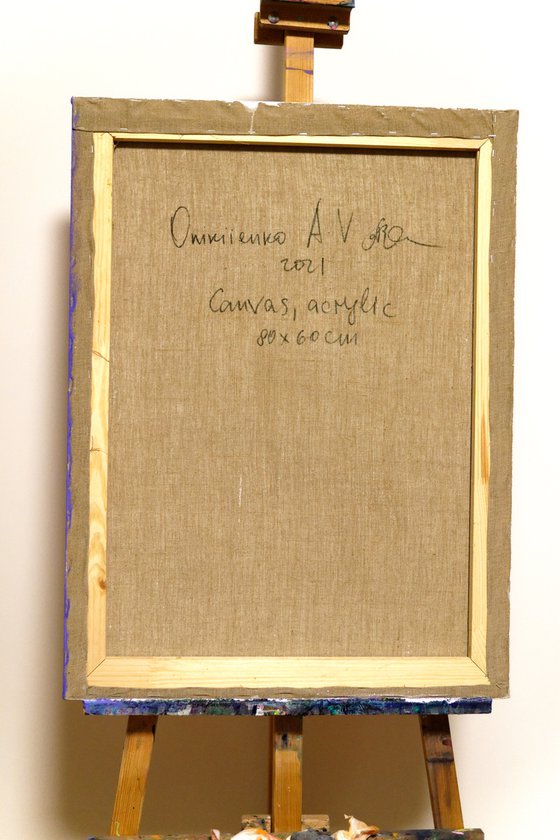 Omeliienko A V
2021
Canvas, acrylic
80x60cm